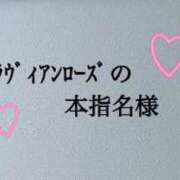 ﾗｳﾞｨｱﾝﾛｰｽﾞの
本指名様